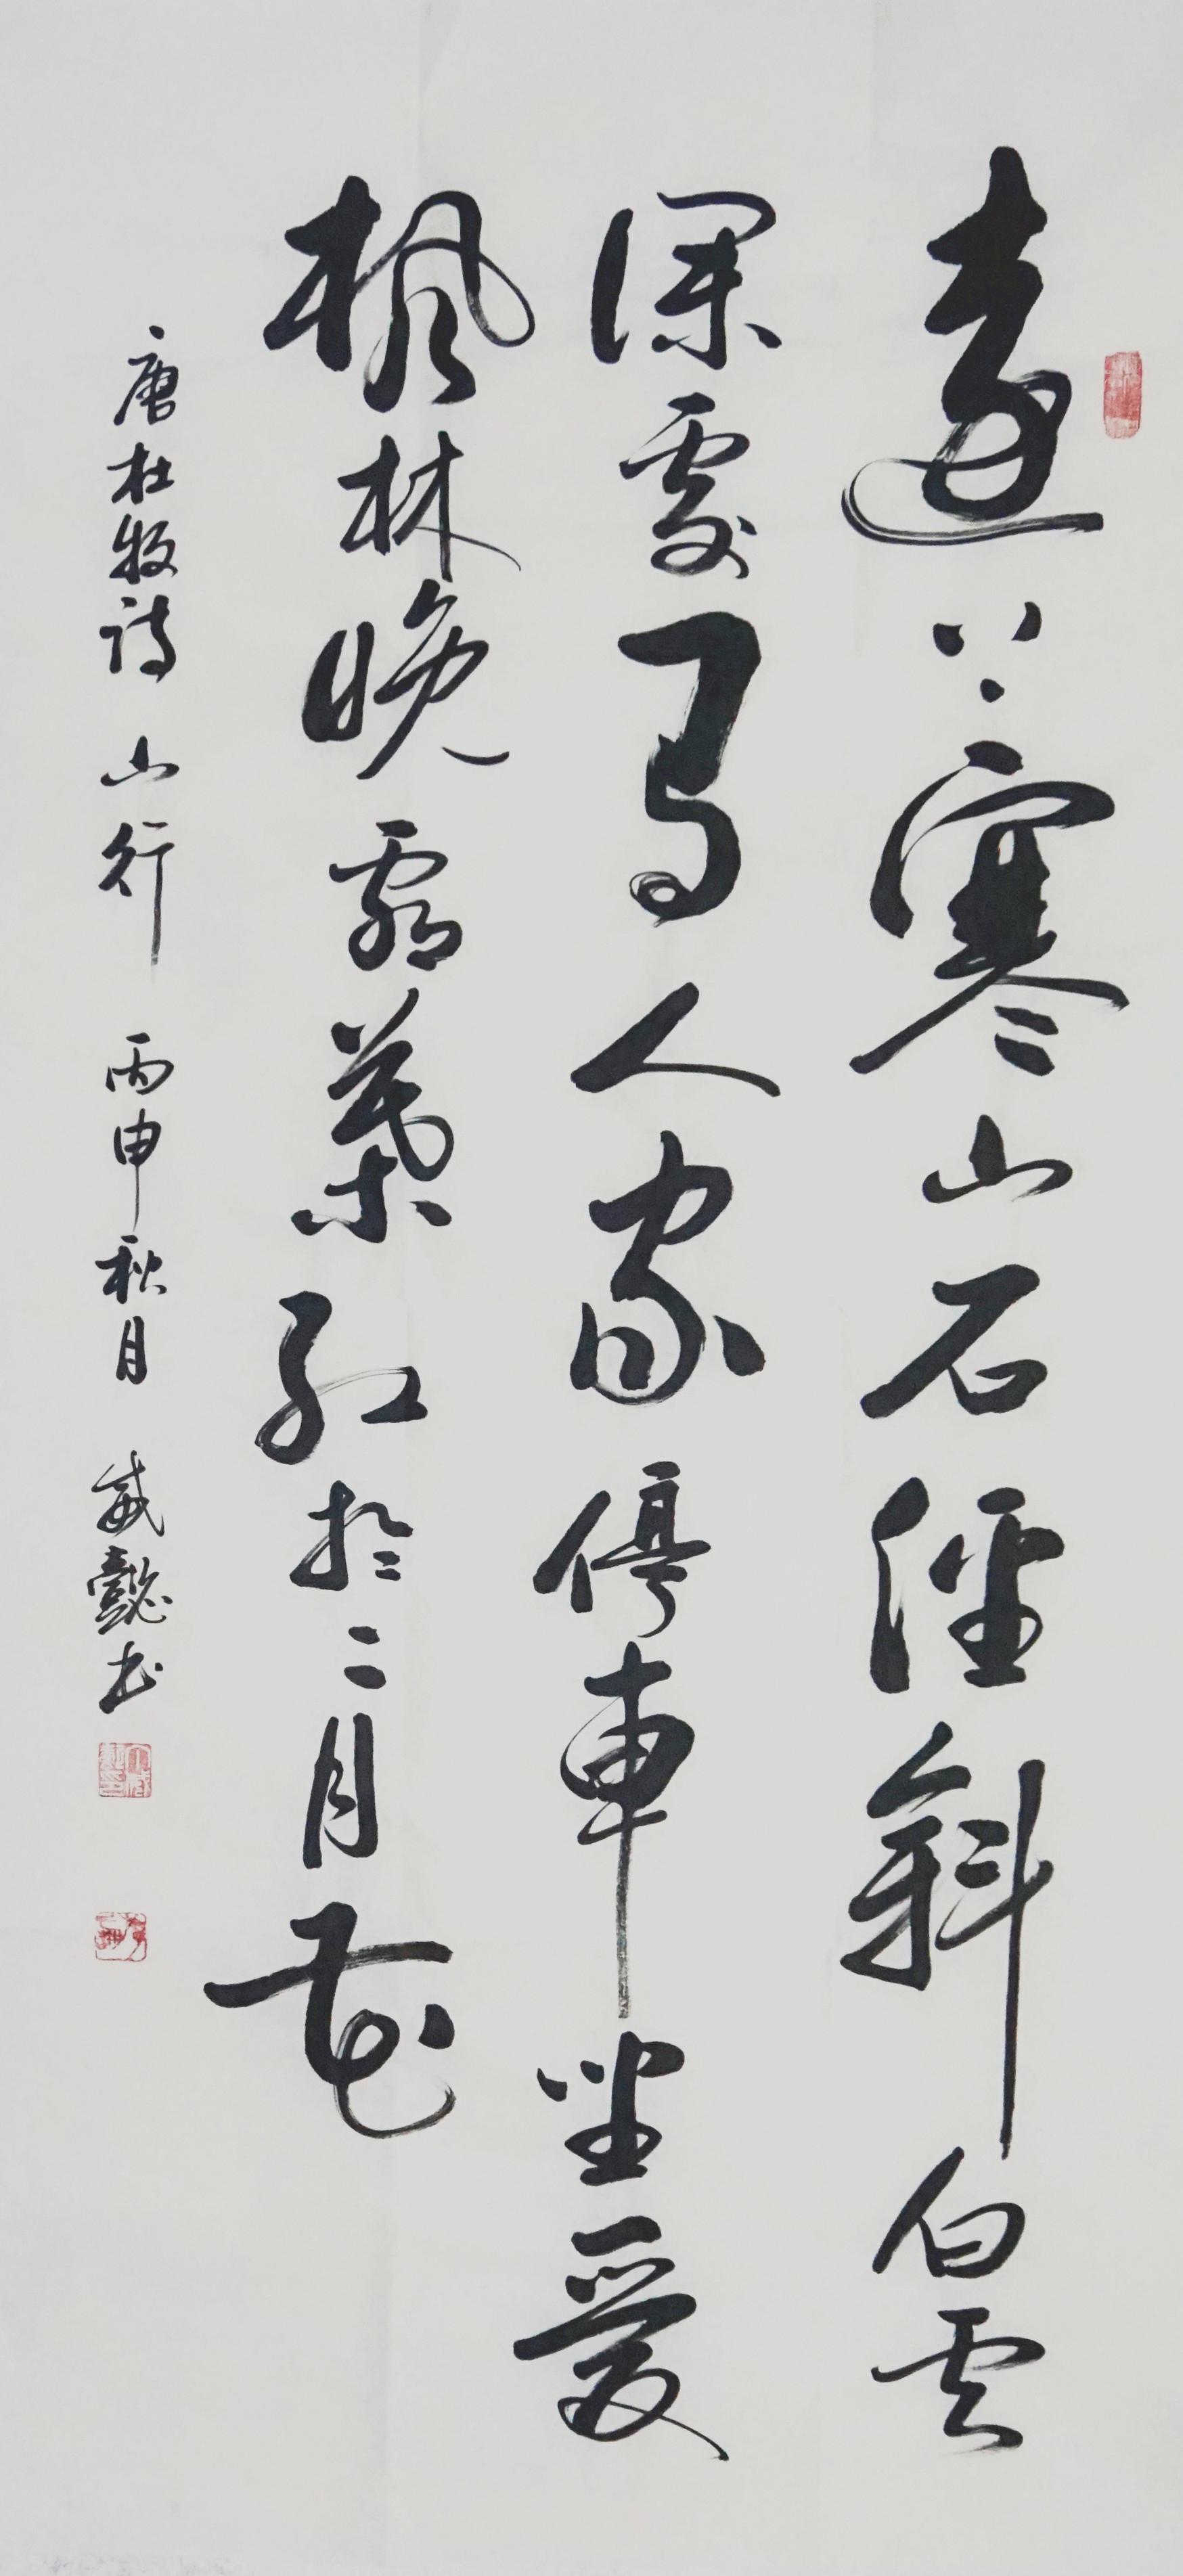 遠上寒山石徑斜白云
深處有人家停車坐愛
楓林晚霜葉紅於二月花
唐杜牧詩 山行 丙申秋月 威懿书